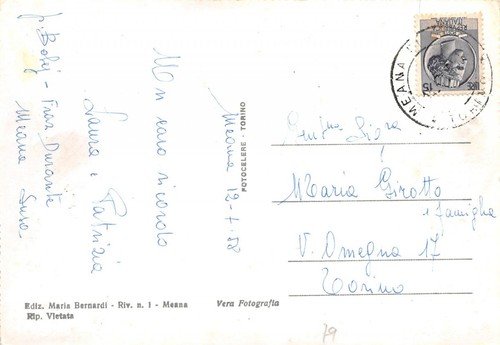 Un caro ricordo
Laura e Patrizia
Fraz. Durante
Meana Susa
FOTOCELERE - TORINO
Meana
MEANA
Maria Girotto
e famiglia
V. Omegna 17
Torino
Ediz. Maria Bernardi - Riv. n. 1 - Meana
Rip. Vietata
Vera Fotografia
79